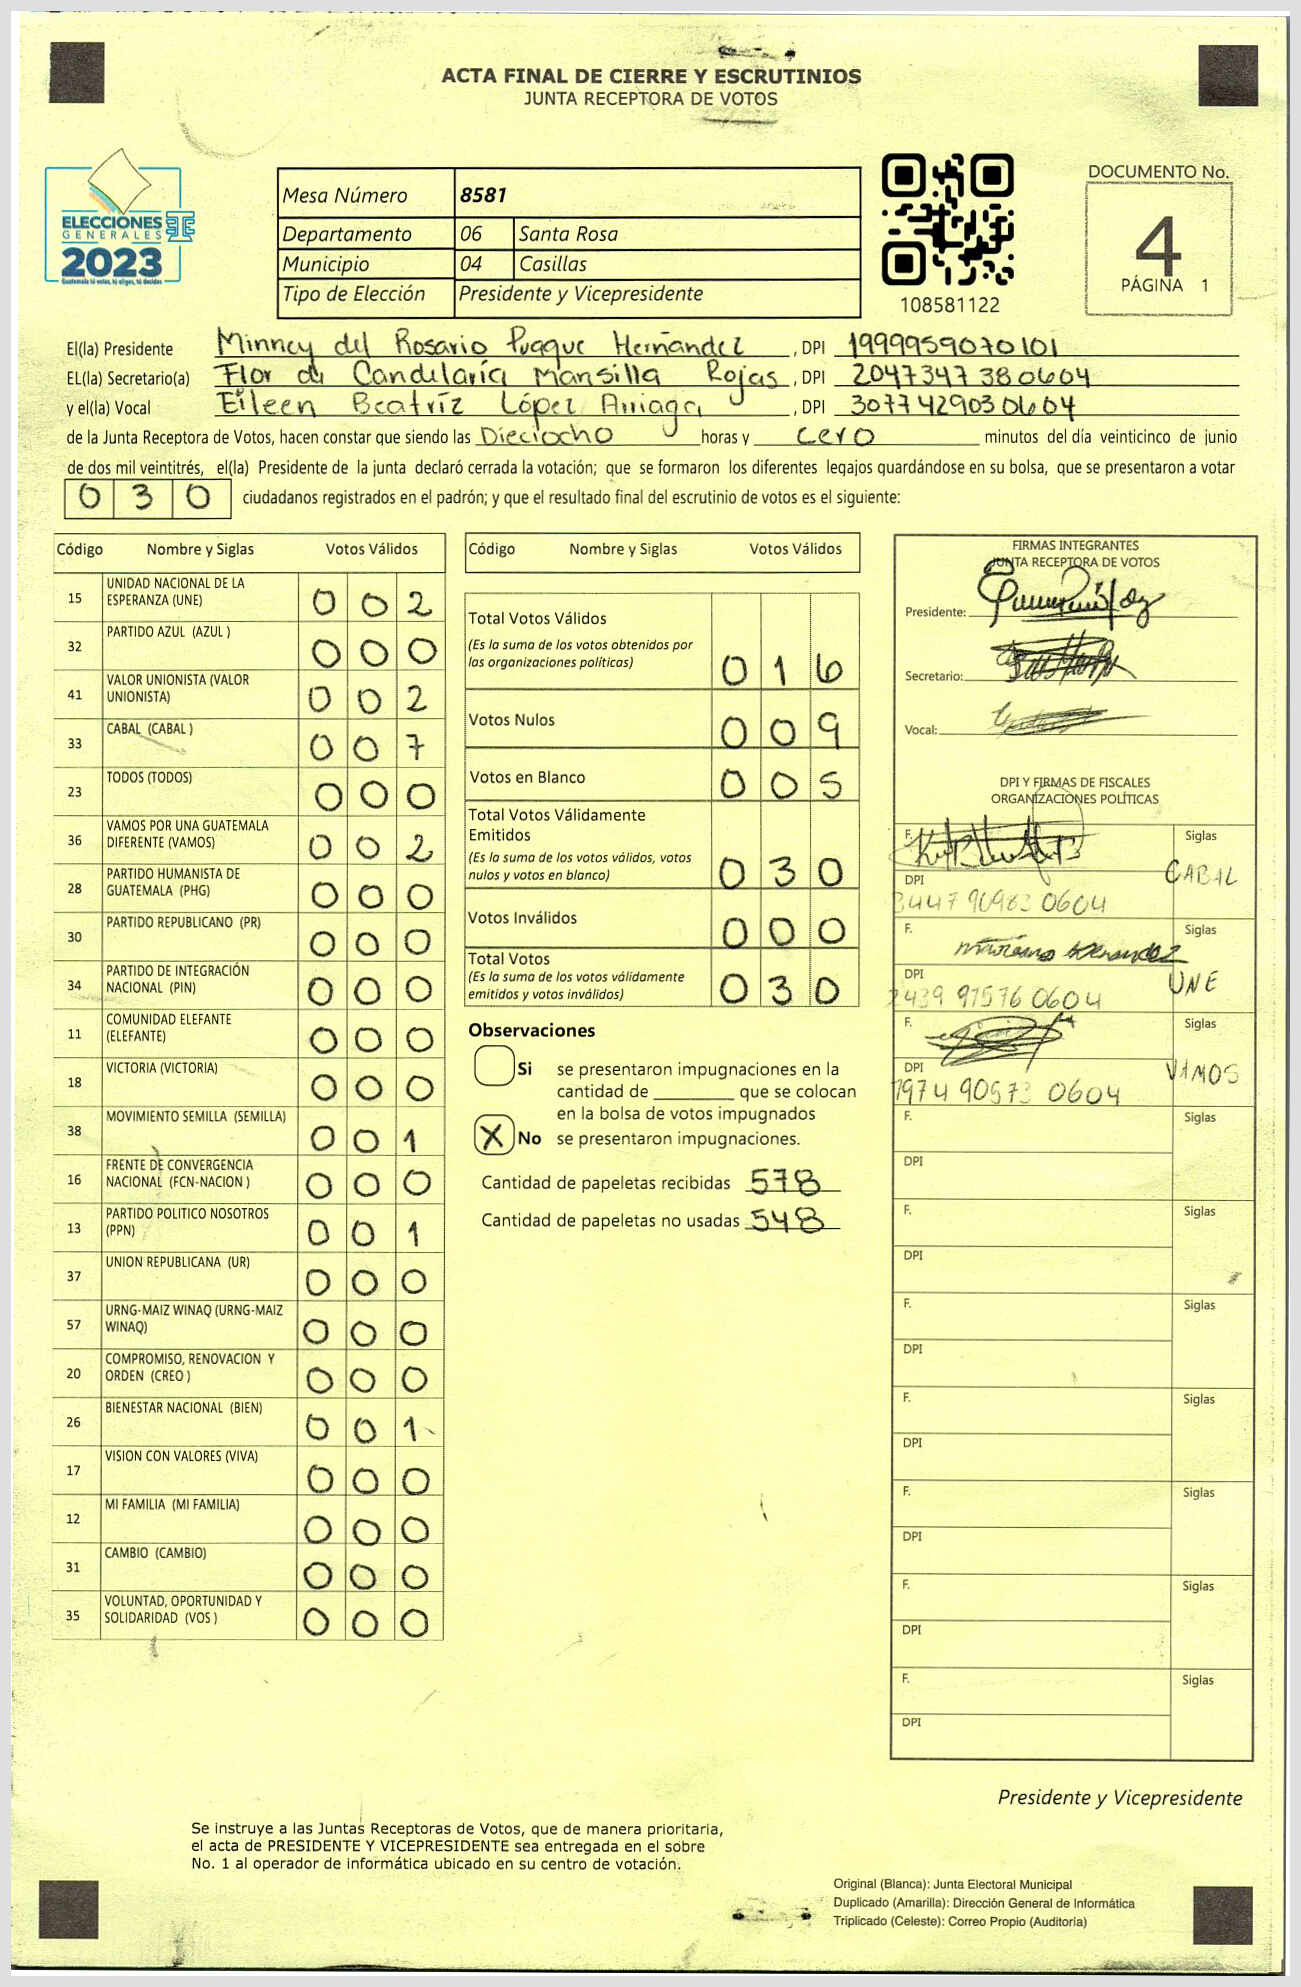 ACTA FINAL DE CIERRE Y ESCRUTINIOS
JUNTA RECEPTORA DE VOTOS
ELECCIONES
GENERALES
2023
Guatemala tú votas, tú eliges, tú decides
Mesa Número 8581
Departamento 06 Santa Rosa
Municipio 04 Casillas
Tipo de Elección Presidente y Vicepresidente
108581122
DOCUMENTO No.
4
PÁGINA 1
El(la) Presidente Minney del Rosario Puaque Hernández , DPI 1999959070101
EL(la) Secretario(a) Flor de Candelaría Mansilla Rojas , DPI 2047347380604
y el(la) Vocal Eileen Beatríz López Arriaga , DPI 3077429030604
de la Junta Receptora de Votos, hacen constar que siendo las Dieciocho horas y cero minutos del día veinticinco de junio
de dos mil veintitrés, el(la) Presidente de la junta declaró cerrada la votación; que se formaron los diferentes legajos guardándose en su bolsa, que se presentaron a votar
0 3 0 ciudadanos registrados en el padrón; y que el resultado final del escrutinio de votos es el siguiente:
Código Nombre y Siglas Votos Válidos
15 UNIDAD NACIONAL DE LA
ESPERANZA (UNE) 0 0 2
32 PARTIDO AZUL (AZUL ) 0 0 0
41 VALOR UNIONISTA (VALOR
UNIONISTA) 0 0 2
33 CABAL (CABAL ) 0 0 7
23 TODOS (TODOS) 0 0 0
36 VAMOS POR UNA GUATEMALA
DIFERENTE (VAMOS) 0 0 2
28 PARTIDO HUMANISTA DE
GUATEMALA (PHG) 0 0 0
30 PARTIDO REPUBLICANO (PR) 0 0 0
34 PARTIDO DE INTEGRACIÓN
NACIONAL (PIN) 0 0 0
11 COMUNIDAD ELEFANTE
(ELEFANTE) 0 0 0
18 VICTORIA (VICTORIA) 0 0 0
38 MOVIMIENTO SEMILLA (SEMILLA) 0 0 1
16 FRENTE DE CONVERGENCIA
NACIONAL (FCN-NACION ) 0 0 0
13 PARTIDO POLITICO NOSOTROS
(PPN) 0 0 1
37 UNION REPUBLICANA (UR) 0 0 0
57 URNG-MAIZ WINAQ (URNG-MAIZ
WINAQ) 0 0 0
20 COMPROMISO, RENOVACION Y
ORDEN (CREO ) 0 0 0
26 BIENESTAR NACIONAL (BIEN) 0 0 1
17 VISION CON VALORES (VIVA) 0 0 0
12 MI FAMILIA (MI FAMILIA) 0 0 0
31 CAMBIO (CAMBIO) 0 0 0
35 VOLUNTAD, OPORTUNIDAD Y
SOLIDARIDAD (VOS ) 0 0 0
Código Nombre y Siglas Votos Válidos
Total Votos Válidos
(Es la suma de los votos obtenidos por
las organizaciones políticas) 0 1 6
Votos Nulos 0 0 9
Votos en Blanco 0 0 5
Total Votos Válidamente
Emitidos
(Es la suma de los votos válidos, votos
nulos y votos en blanco) 0 3 0
Votos Inválidos 0 0 0
Total Votos
(Es la suma de los votos válidamente
emitidos y votos inválidos) 0 3 0
Observaciones
Si se presentaron impugnaciones en la
cantidad de ________ que se colocan
en la bolsa de votos impugnados
X No se presentaron impugnaciones.
Cantidad de papeletas recibidas 578
Cantidad de papeletas no usadas 548
FIRMAS INTEGRANTES
JUNTA RECEPTORA DE VOTOS
Presidente:
Secretario:
Vocal:
DPI Y FIRMAS DE FISCALES
ORGANIZACIONES POLÍTICAS
F. Siglas
CABAL
DPI
0604
F. Siglas
DPI UNE
2439 91576 0604
F. Siglas
DPI VAMOS
0604
F. Siglas
DPI
F. Siglas
DPI
F. Siglas
DPI
F. Siglas
DPI
F. Siglas
DPI
F. Siglas
DPI
F. Siglas
DPI
Presidente y Vicepresidente
Se instruye a las Juntas Receptoras de Votos, que de manera prioritaria,
el acta de PRESIDENTE Y VICEPRESIDENTE sea entregada en el sobre
No. 1 al operador de informática ubicado en su centro de votación.
Original (Blanca): Junta Electoral Municipal
Duplicado (Amarilla): Dirección General de Informática
Triplicado (Celeste): Correo Propio (Auditoría)